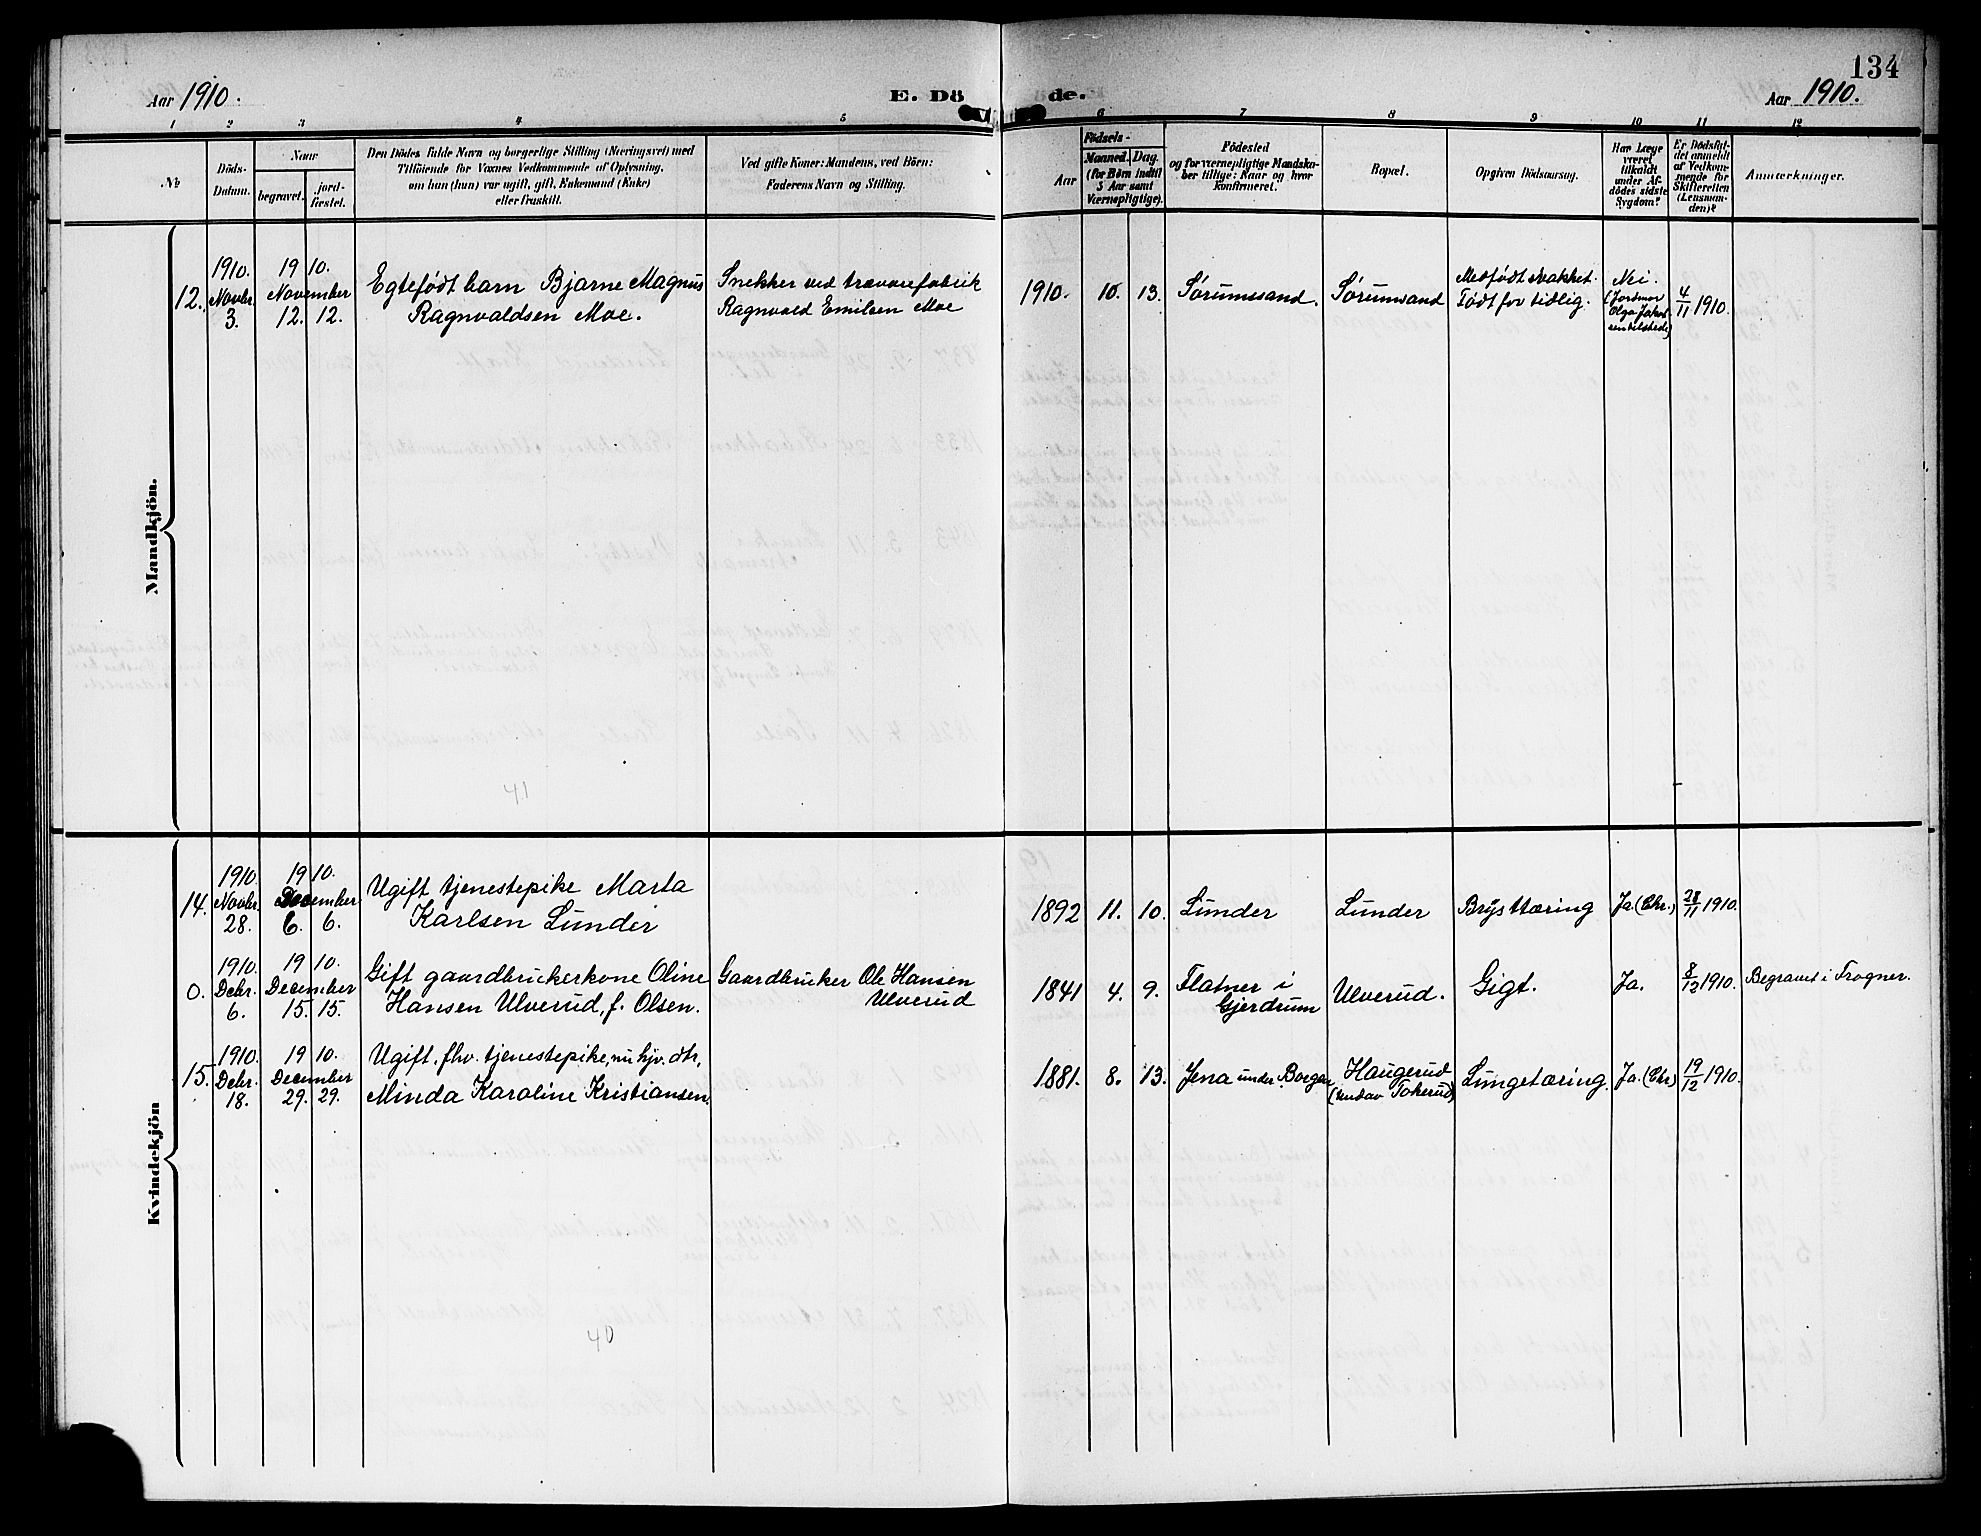 134
Aar 1910.
E. Döde.
Aar 1910.
1 2 3 4 5 6 7 8 9 10 11 12
№
Döds-
Datum.
Naar
begravet.
jord-
fæstet.
Den Dödes fulde Navn og borgerlige Stilling (Næringsvei) med
Tilföiende for Voxnes Vedkommende af Oplysning,
om han (hun) var ugift, gift, Enkemand (Enke)
eller fraskilt.
Ved gifte Koner: Mandens, ved Börn:
Faderens Navn og Stilling.
Födsels-
Aar
Maaned. Dag.
(for Börn indtil
5 Aar samt
Værnepligtige).
Födested
og for værnepligtige Mandska-
ber tillige: Naar og hvor
konfirmeret.
Bopæl.
Opgiven Dödsaarsag.
Har Læge
været
tilkaldt
under Af-
dödes sidste
Sygdom?
Er Dödsfal-
det anmeldt
af Vedkom-
mende for
Skifteretten
(Lensman-
den)?
Anmærkninger.
Mandkjön.
12.
1910.
Novbr.
3.
1910.
November
12. 12.
Egtefødt barn Bjarne Magnus
Ragnvaldsen Moe.
Snekker ved trævarefabrik
Ragnvald Emilsen Moe
1910. 10. 13.
Sørumssand.
Sørumsand
Medfødt svakhet.
Født for tidlig.
Nei.
(Jordmor
Olga Jakob
sen tilstede)
4/11 1910.
41
Kvindekjön
14.
1910.
Novbr.
28.
1910.
December
6. 6.
Ugift tjenestepike Marta
Karlsen Lunder
1892 11. 10.
Lunder
Lunder
Brysttæring
Ja (Chr.)
28/11 1910.
0.
1910.
Decbr.
6.
1910.
December
15. 15.
Gift gaardbrukerkone Oline
Hansen Ulverud, f. Olsen.
Gaardbruker Ole Hansen
Ulverud
1841 4. 9.
Flatner i
Gjerdrum
Ulverud.
Gigt.
Ja.
8/12 1910.
Begravet i Frogner.
15.
1910.
Decbr.
18.
1910.
December
29. 29.
Ugift. fhv. tjenestepike, nu hjv. dtr,
Minda Karoline Kristiansen.
1881. 8. 13.
Jena under Borgen
Haugerud
(undav Tokerud)
Lungetæring.
Ja. (Chr)
19/12 1910.
40